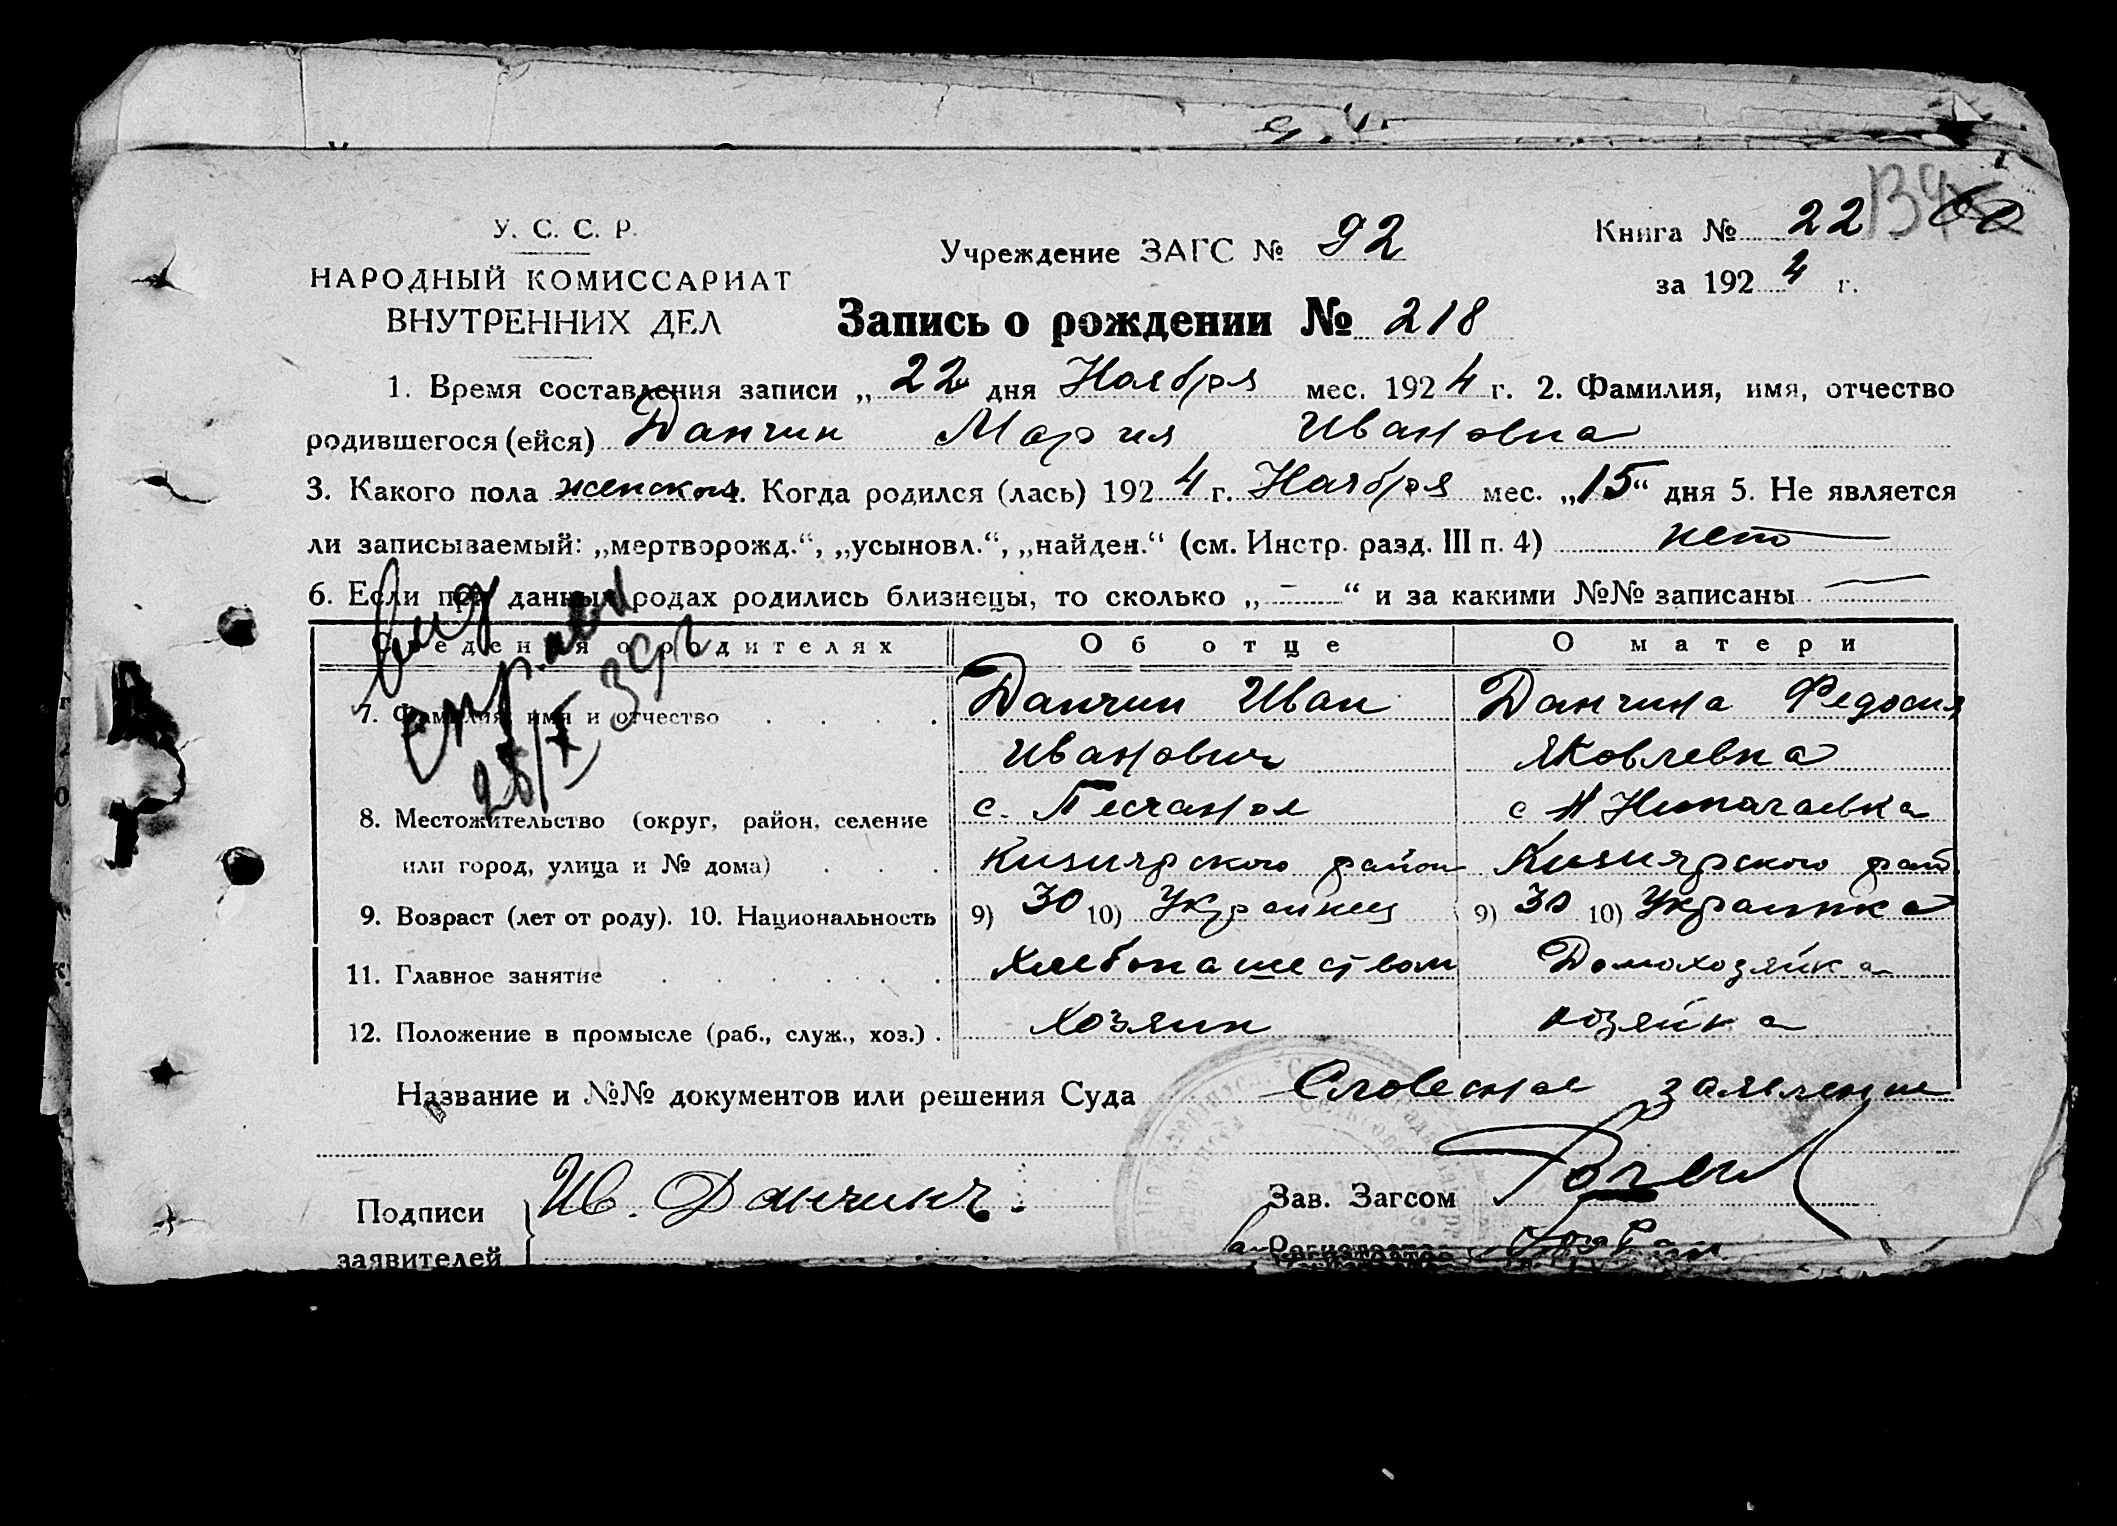 У. С. С. Р.
НАРОДНЫЙ КОМИССАРИАТ
ВНУТРЕННИХ ДЕЛ
Учреждение ЗАГС № 92
Книга № 22
за 1924 г.
Запись о рождении № 218
1. Время составления записи „22" дня Ноября мес. 1924 г. 2. Фамилия, имя, отчество
родившегося (ейся) Данчин Мария Ивановна
3. Какого пола женском 4. Когда родился (лась) 1924 г. Ноября мес. „15“ дня 5. Не является
ли записываемый: „мертворожд.“, „усыновл.“, „найден.“ (см. Инстр. разд. III п. 4) нет
6. Если при данных родах родились близнецы, то сколько „—“ и за какими №№ записаны —
Сведения о родителях Об отце О матери
7. Фамилия, имя и отчество Данчин Иван Данчина Федосия
Иванович Яковлевна
8. Местожительство (округ, район, селение с. Песчаное с Н
или город, улица и № дома) Кизиярского район Кизиярского рай
9. Возраст (лет от роду). 10. Национальность 9) 30 10) Украинец 9) 30 10) Украинка
11. Главное занятие Хлебопашеством Домохозяйка
12. Положение в промысле (раб., служ., хоз.) Хозяин хозяйка
Выд
справ
28/X 39 г
Название и №№ документов или решения Суда Словесное заявление
Подписи Ив. Данчинъ.
заявителей
Зав. Загсом